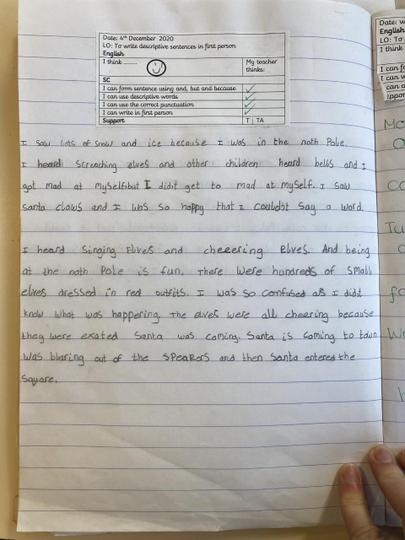 Date: 4th December 2020
LO: To write descriptive sentences in first person
English
I think ...... My teacher thinks:
SC
I can form sentence using and, but and because
I can use descriptive words
I can use the correct punctuation
I can write in first person
Support T | TA
I saw lots of snow and ice because I was in the noth Pole.
I heard screaching elves and other children heard bells and I
got mad at myself but I didit get to mad at myself. I saw
santa claws and I was so happy that I couldent say a word.
I heard singing Elves and cheeering Elves. And being
at the noth Pole is fun. There were hundreds of small
elves dressed in red outfits. I was so confused as I didt
know what was happering. The elves were all cheering because
they were exated Santa was coming. Santa is coming to town
was blaring out of the speakers and then Santa entered the
square.
Date: w
English
LO: To
I think
I can f
I can w
can a